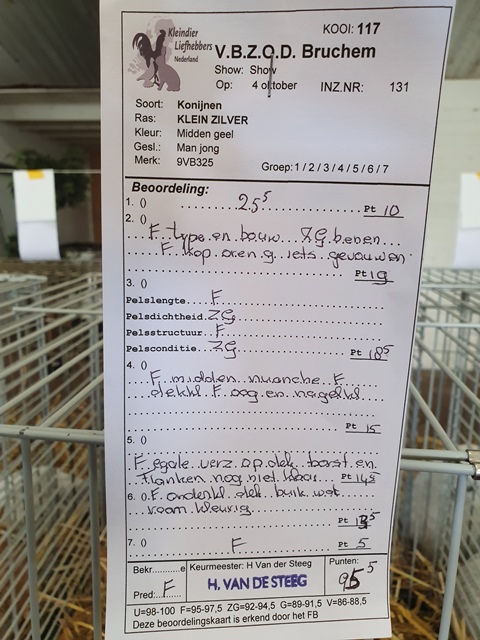 Kleindier
Liefhebbers
Nederland
KOOI: 117
V.B.Z.O.D. Bruchem
Show: Show
Op: 4 oktober INZ.NR: 131
Soort: Konijnen
Ras: KLEIN ZILVER
Kleur: Midden geel
Gesl.: Man jong
Merk: 9VB325
Groep: 1 / 2 / 3 / 4 / 5 / 6 / 7
Beoordeling:
1. () 25⁵ Pt 10
2. ()
F type en bouw ZG benen
F kop oren g iets gevouwen
Pt 19
3. ()
Pelslengte F
Pelsdichtheid ZG
Pelsstructuur F
Pelsconditie ZG Pt 18⁵
4. ()
F midden nuanche F
dekkl F oog en nagelkl
Pt 15
5. ()
F egale verz op dek borst en
flanken nog niet klaar Pt 14⁵
6. () F onderkl dek buik wat
room kleurig
Pt 13⁵
7. () F Pt 5
Bekr..........e Keurmeester: H Van der Steeg Punten:
Pred: F H. VAN DE STEEG 95⁵
U=98-100 F=95-97,5 ZG=92-94,5 G=89-91,5 V=86-88,5
Deze beoordelingskaart is erkend door het FB